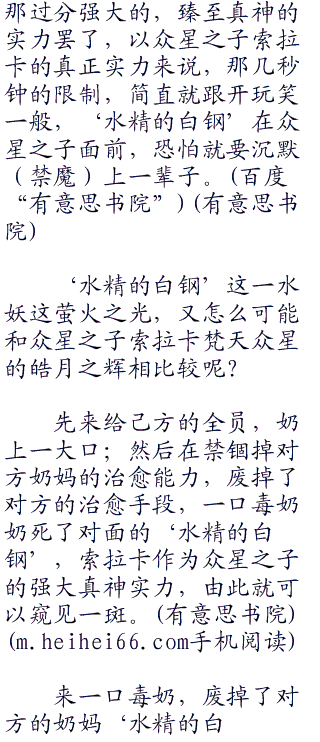 那过分强大的，臻至真神的
实力罢了，以众星之子索拉
卡的真正实力来说，那几秒
钟的限制，简直就跟开玩笑
一般，‘水精的白钢’在众
星之子面前，恐怕就要沉默
（禁魔）上一辈子。(百度
“有意思书院”)(有意思书
院)
‘水精的白钢’这一水
妖这萤火之光，又怎么可能
和众星之子索拉卡梵天众星
的皓月之辉相比较呢？
先来给己方的全员，奶
上一大口；然后在禁锢掉对
方奶妈的治愈能力，废掉了
对方的治愈手段，一口毒奶
奶死了对面的‘水精的白
钢’，索拉卡作为众星之子
的强大真神实力，由此就可
以窥见一斑。(有意思书院)
(m.heihei66.com手机阅读)
来一口毒奶，废掉了对
方的奶妈‘水精的白